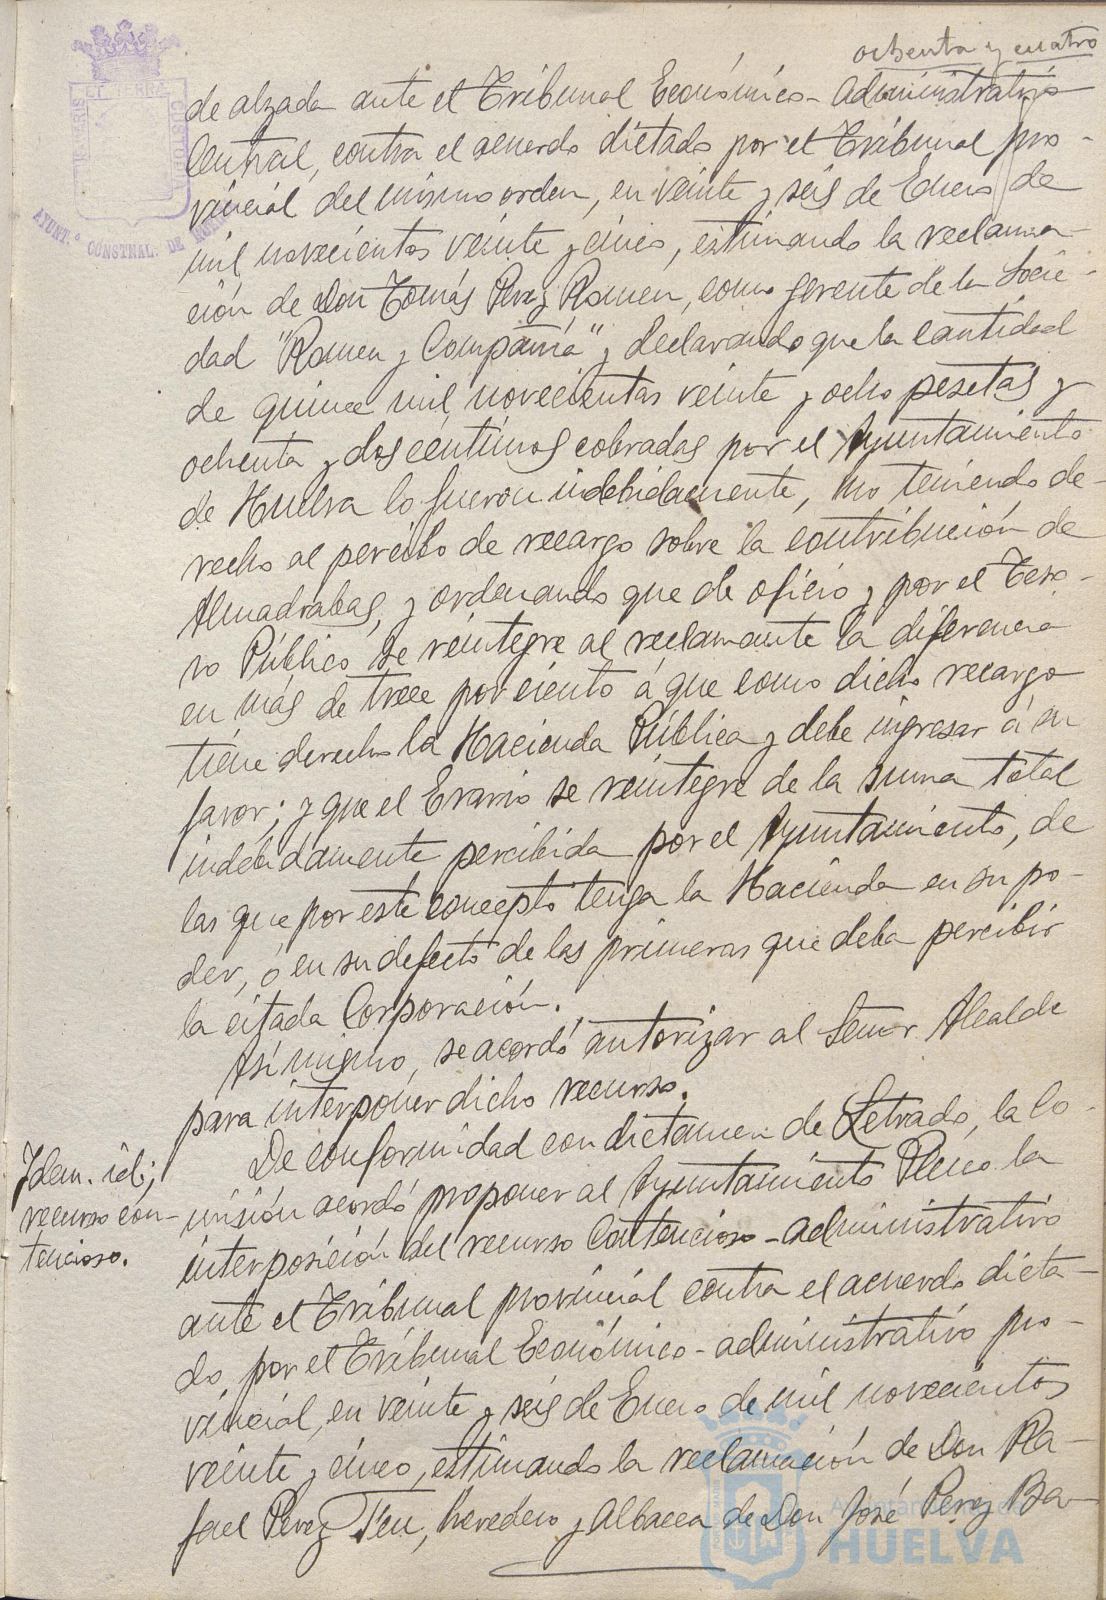 ochenta y cuatro
de alzada ante el Tribunal Económico-Administrativo
Central, contra el acuerdo dictado por el Tribunal pro-
vincial del mismo orden, en veinte y seis de Enero de
mil novecientos veinte y cinco, estimando la reclama-
ción de Don Tomás Perez Romeu, como gerente de la Socie-
dad "Romeu y Compañía" y declarando que la cantidad
de quince mil novecientas veinte y ocho pesetas y
ochenta y dos céntimos cobradas por el Ayuntamiento
de Huelva lo fueron indebidamente, no teniendo de-
recho al percibo de recargo sobre la contribución de
Almadrabas, y ordenando que de oficio y por el Teso-
ro Público se reintegre al reclamante la diferencia
en más de trece por ciento á que como dicho recargo
tiene derecho la Hacienda Pública y debe ingresar á su
favor; y que el Erario se reintegre de la suma total
indebidamente percibida por el Ayuntamiento, de
las que por este concepto tenga la Hacienda en su po-
der, ó en su defecto de las primeras que deba percibir
la citada Corporación.
Asímismo, se acordó autorizar al Señor Alcalde
para interponer dicho recurso.
Idem. id;
recurso con-
tencioso.
De conformidad con dictamen de Letrado, la Co-
misión acordó proponer al Ayuntamiento Pleno la
interposición del recurso Contencioso-administrativo
ante el Tribunal provincial contra el acuerdo dicta-
do por el Tribunal Económico-administrativo pro-
vincial, en veinte y seis de Enero de mil novecientos
veinte y cinco, estimando la reclamación de Don Ra-
fael Perez Feu, heredero y Albacea de Don José Perez Bar-
AYUNT.º CONSTNAL. DE
Ayuntamiento de
HUELVA